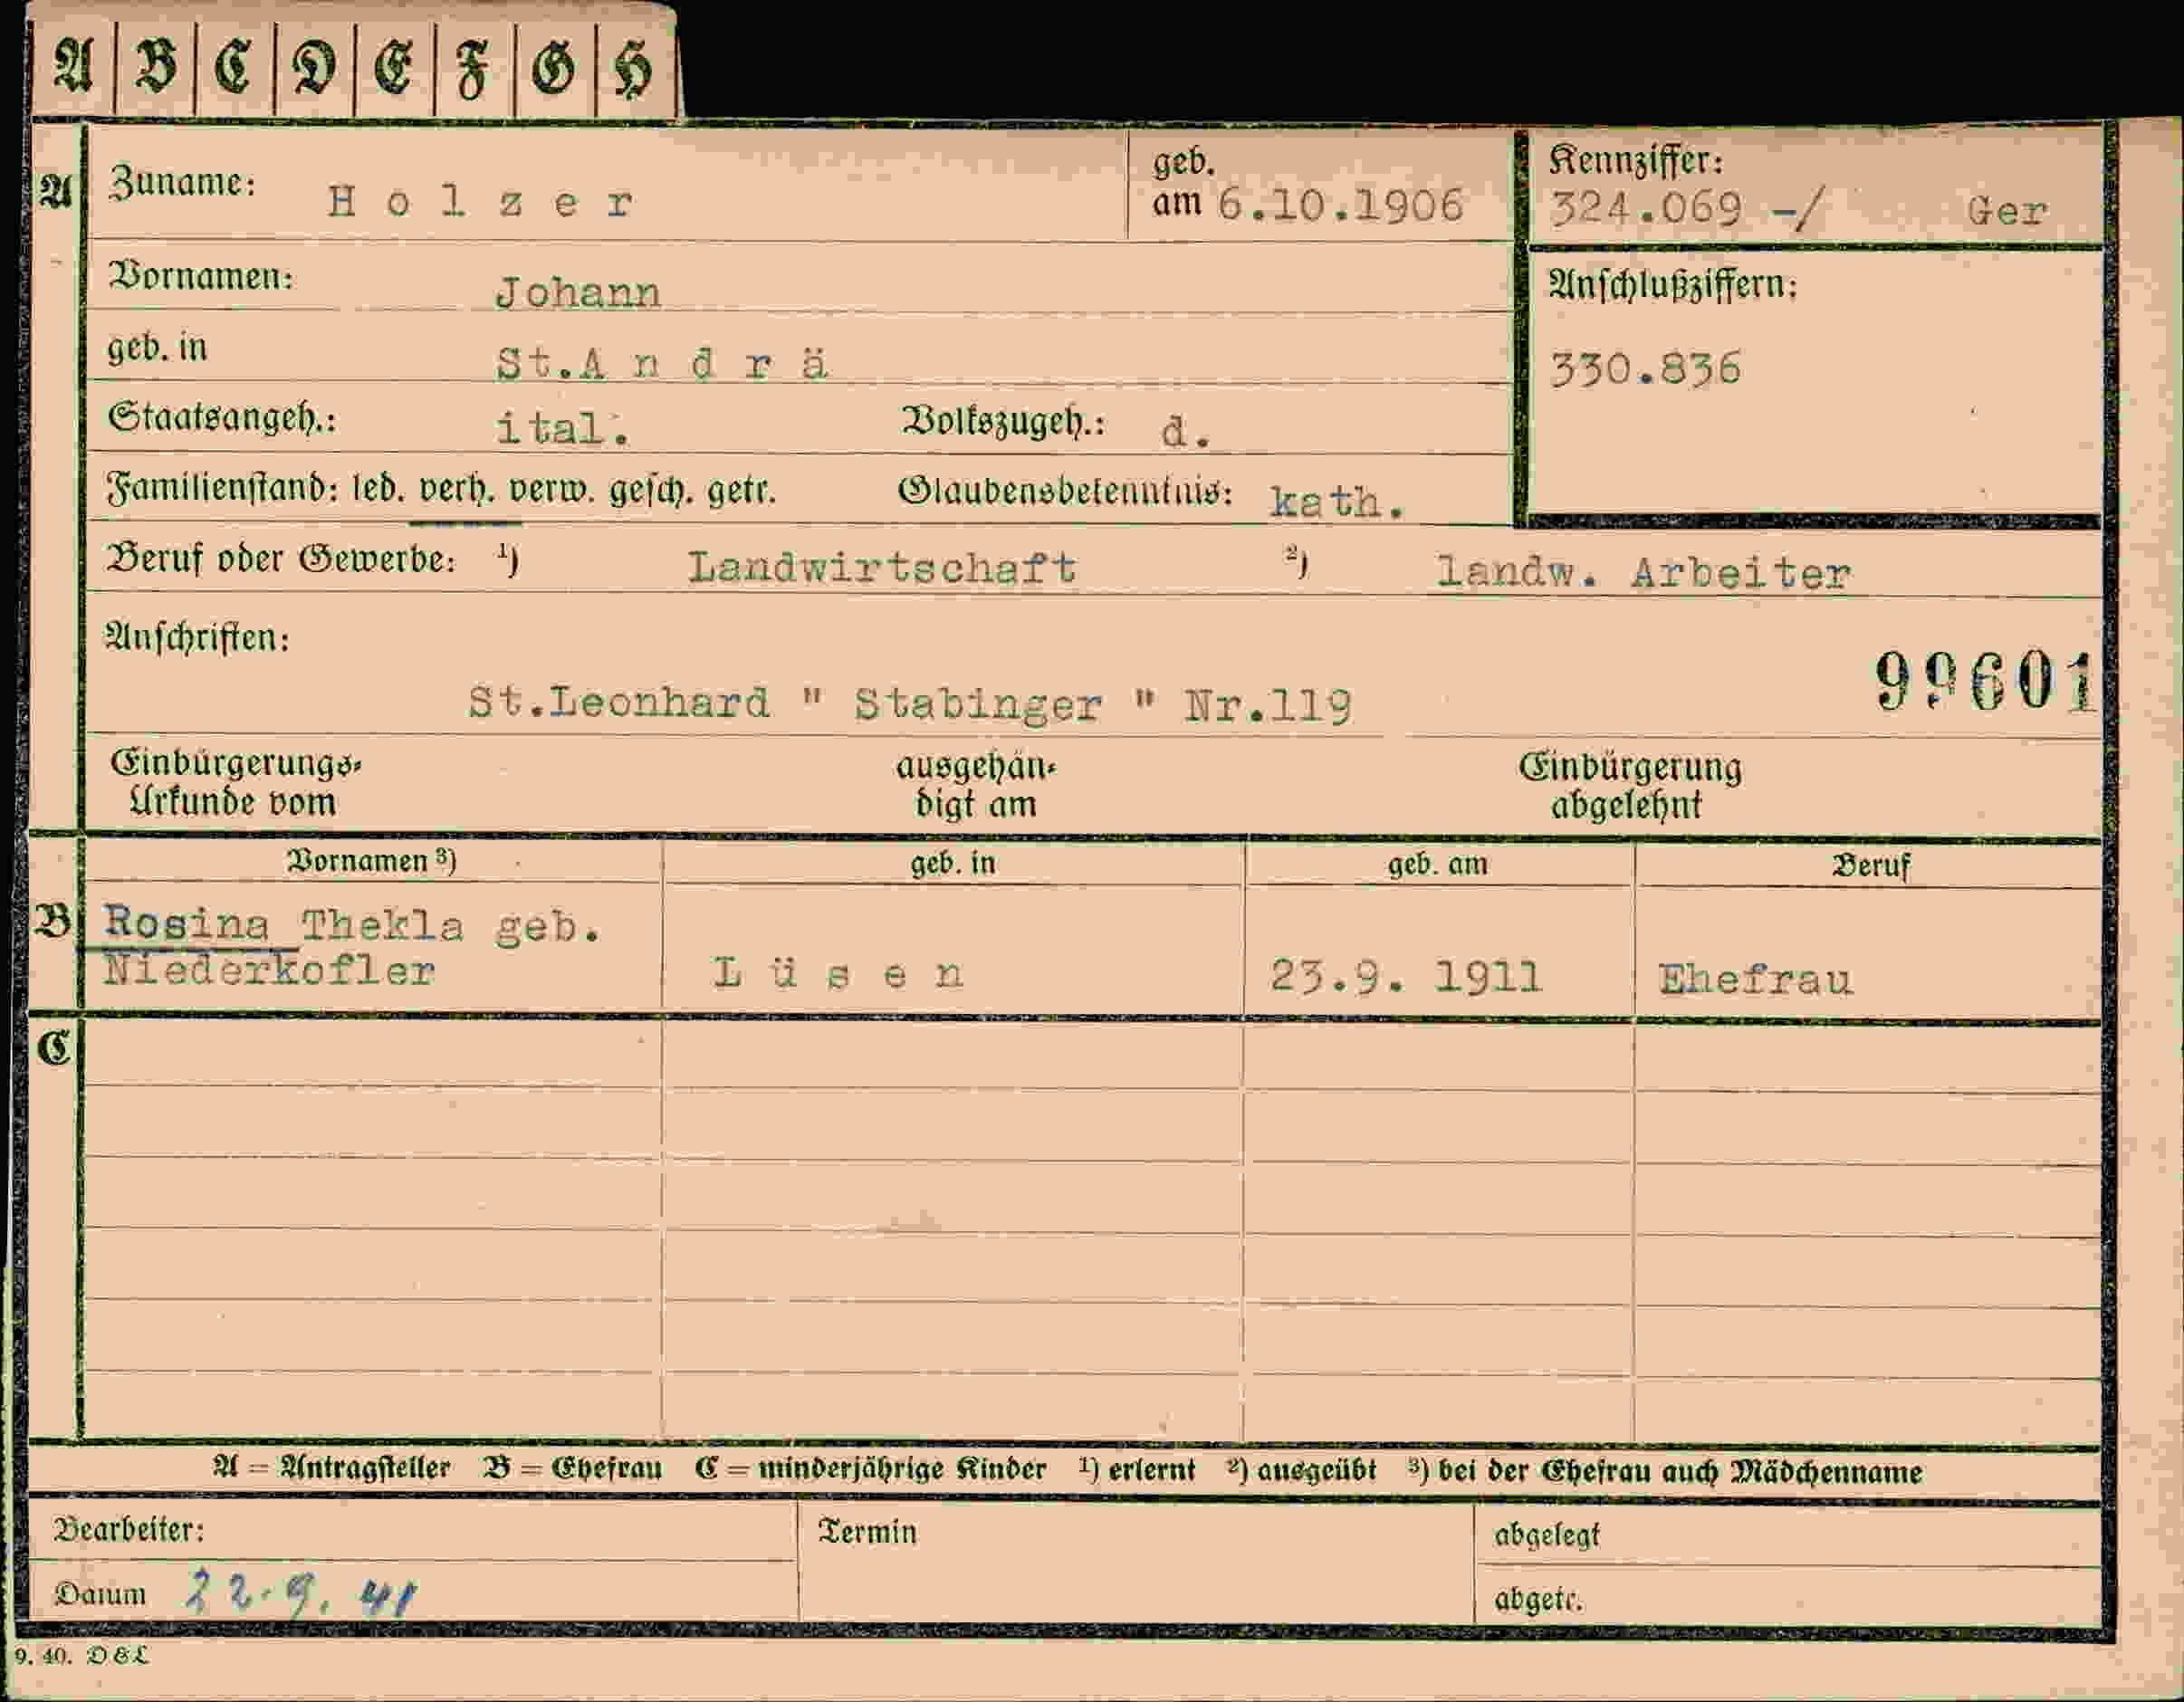 A B C D E F G H
A Zuname: Holzer geb. am 6.10.1906 Kennziffer: 324.069 -/ Ger
Vornamen: Johann Anschlußziffern:
geb. in St.Andrä 330.836
Staatsangeh.: ital. Volkszugeh.: d.
Familienstand: led. verh. verw. gesch. getr. Glaubensbekenntnis: kath.
Beruf oder Gewerbe: ¹) Landwirtschaft ²) landw. Arbeiter
Anschriften:
99601
St.Leonhard " Stabinger " Nr.119
Einbürgerungs-Urkunde vom ausgehändigt am Einbürgerung abgelehnt
Vornamen ³) geb. in geb. am Beruf
B Rosina Thekla geb.
Niederkofler Lüsen 23.9. 1911 Ehefrau
C
A = Antragsteller B = Ehefrau C = minderjährige Kinder ¹) erlernt ²) ausgeübt ³) bei der Ehefrau auch Mädchenname
Bearbeiter: Termin abgelegt
Datum 22.9.41 abgetr.
9. 40. D&L